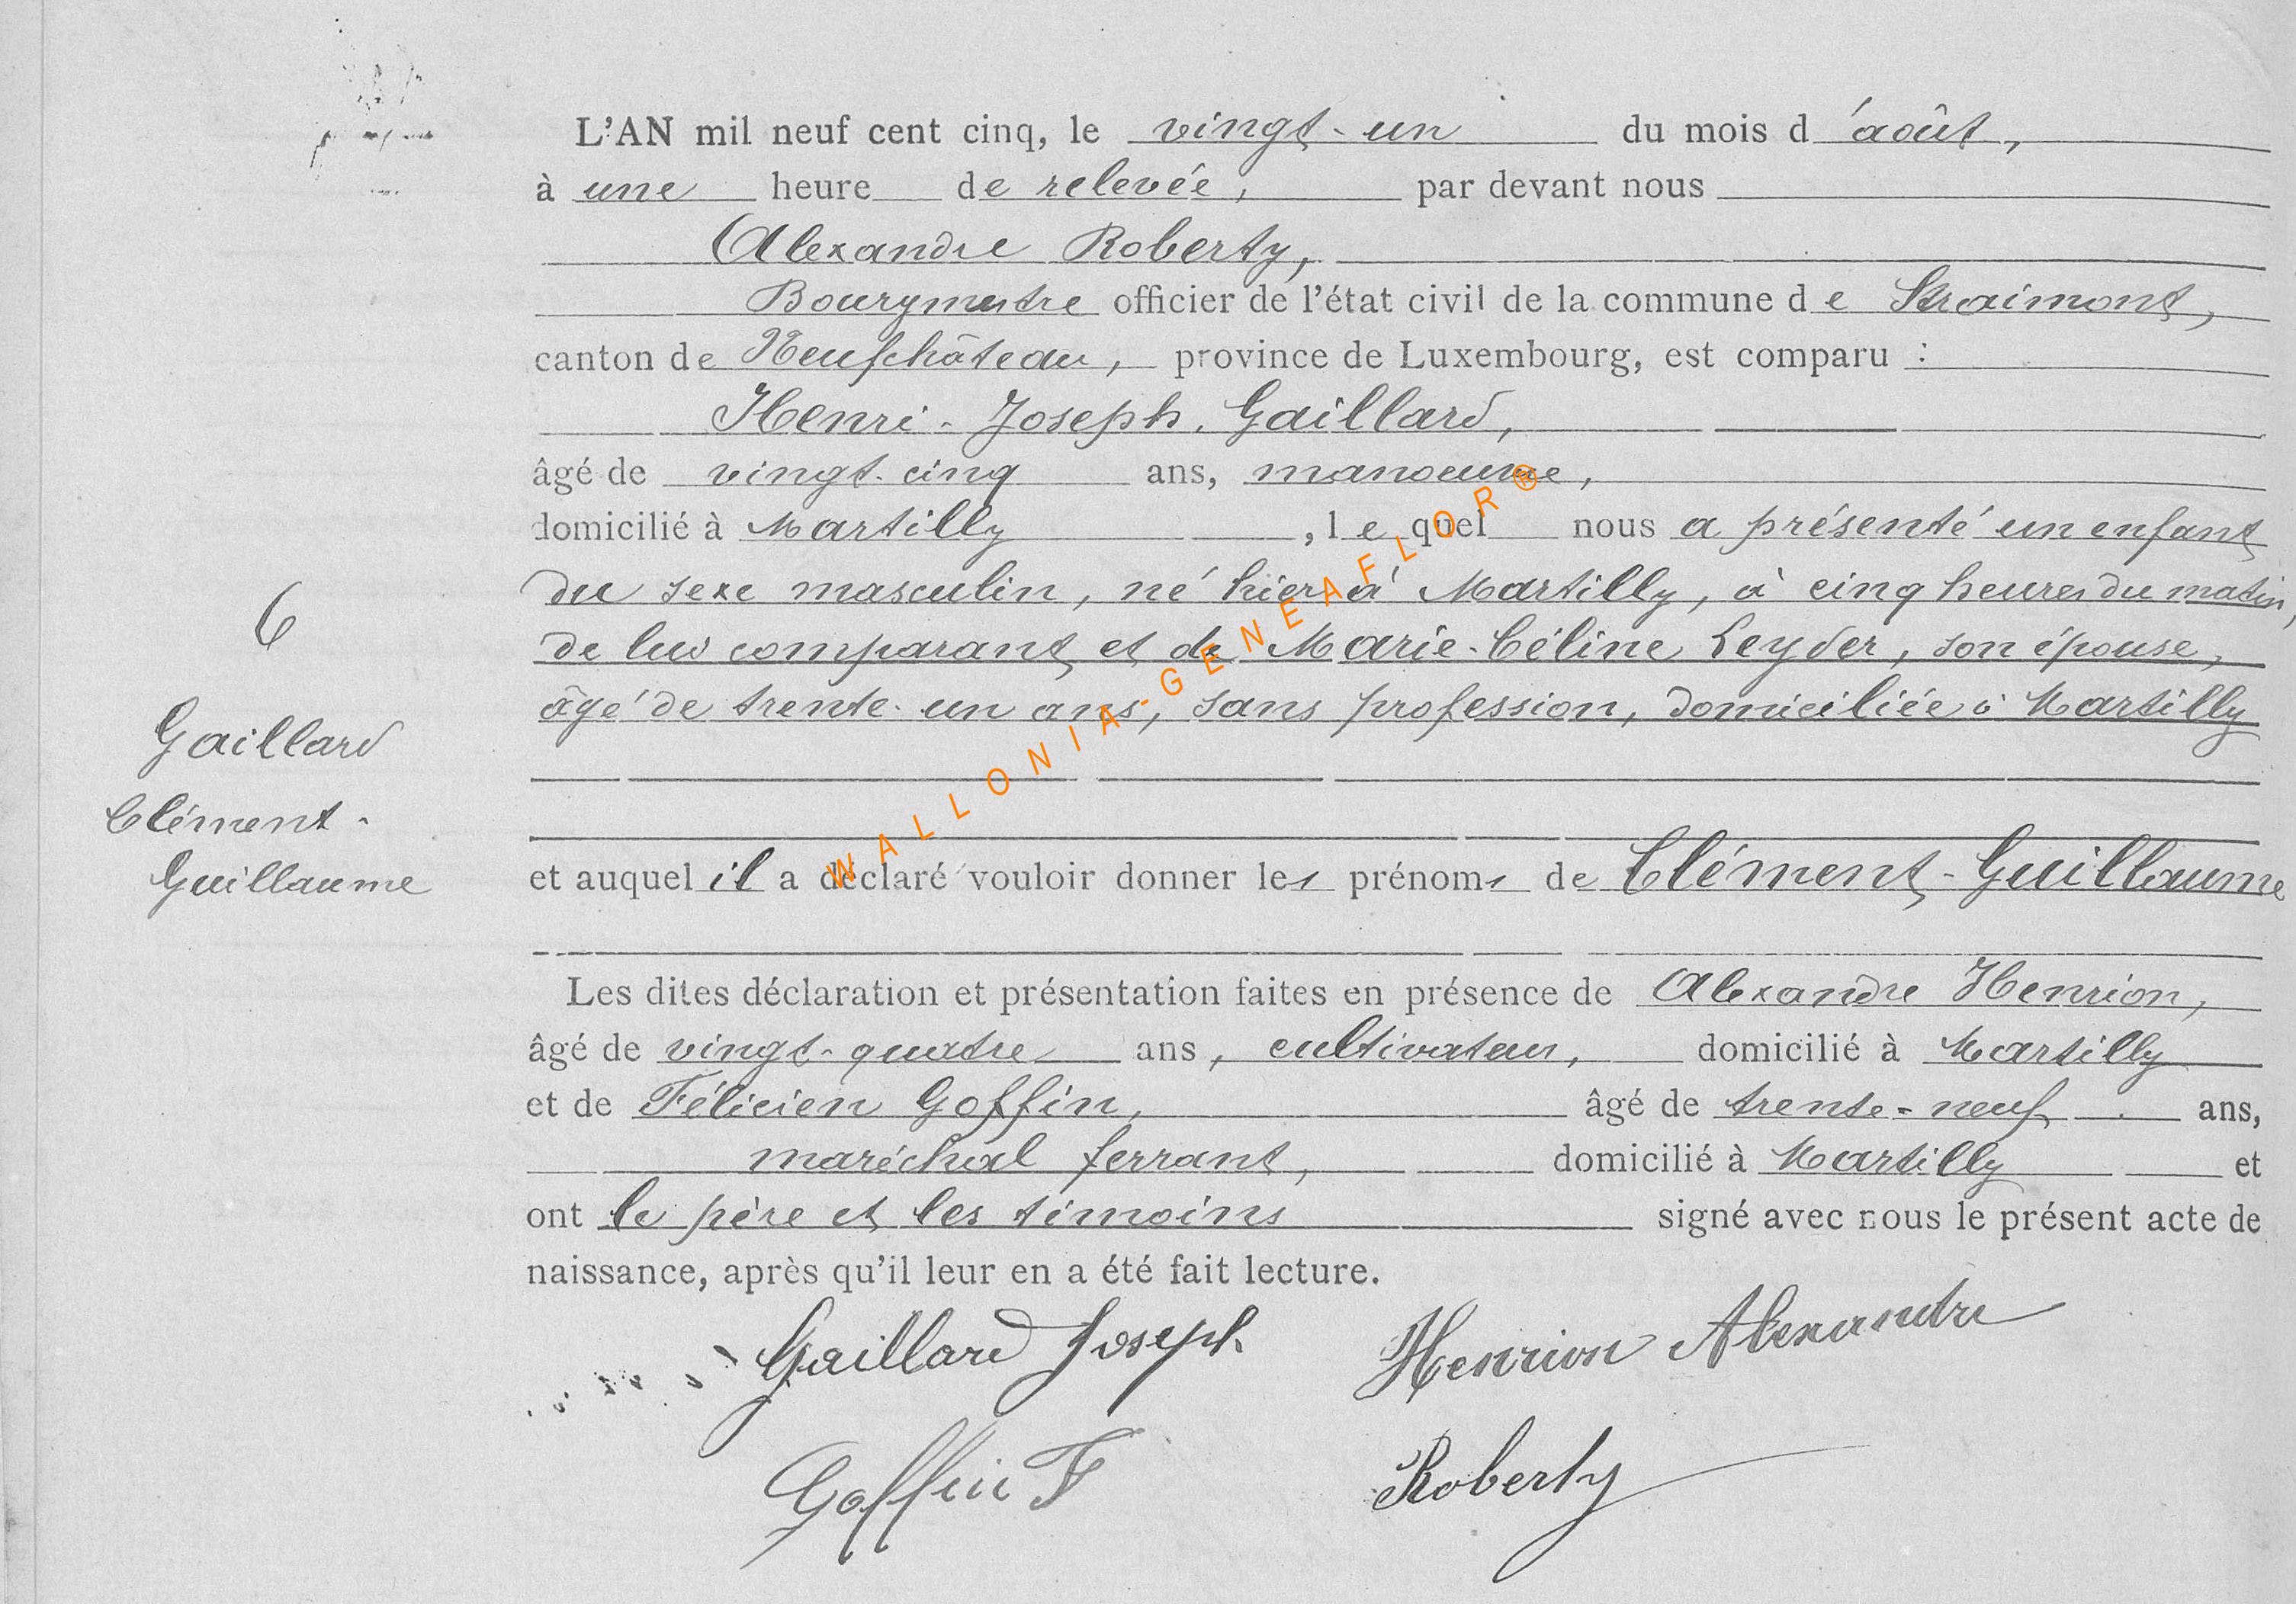 L'AN mil neuf cent cinq, le vingt-un du mois d'août,
à une heure de relevée, par devant nous
Alexandre Roberty,
Bourgmestre officier de l'état civil de la commune de Straimont,
canton de Neufchâteau, province de Luxembourg, est comparu :
Henri-Joseph Gaillard,
âgé de vingt-cinq ans, manoeuvre,
domicilié à Martilly, lequel nous a présenté un enfant
du sexe masculin, né hier à Martilly, à cinq heures du matin,
de lui comparant et de Marie-Céline Leyder, son épouse,
âgé de trente-un ans, sans profession, domiciliée à Martilly
6
Gaillard
Clément-
Guillaume
et auquel il a déclaré vouloir donner les prénoms de Clément-Guillaume
Les dites déclaration et présentation faites en présence de Alexandre Henrion,
âgé de vingt-quatre ans, cultivateur, domicilié à Martilly
et de Félicien Goffin, âgé de trente-neuf ans,
maréchal ferrant, domicilié à Martilly et
ont le père et les témoins signé avec nous le présent acte de
naissance, après qu'il leur en a été fait lecture.
Gaillard Joseph Henrion Alexandre
Goffin F Roberty
WALLONIA-GENEAFLOR®